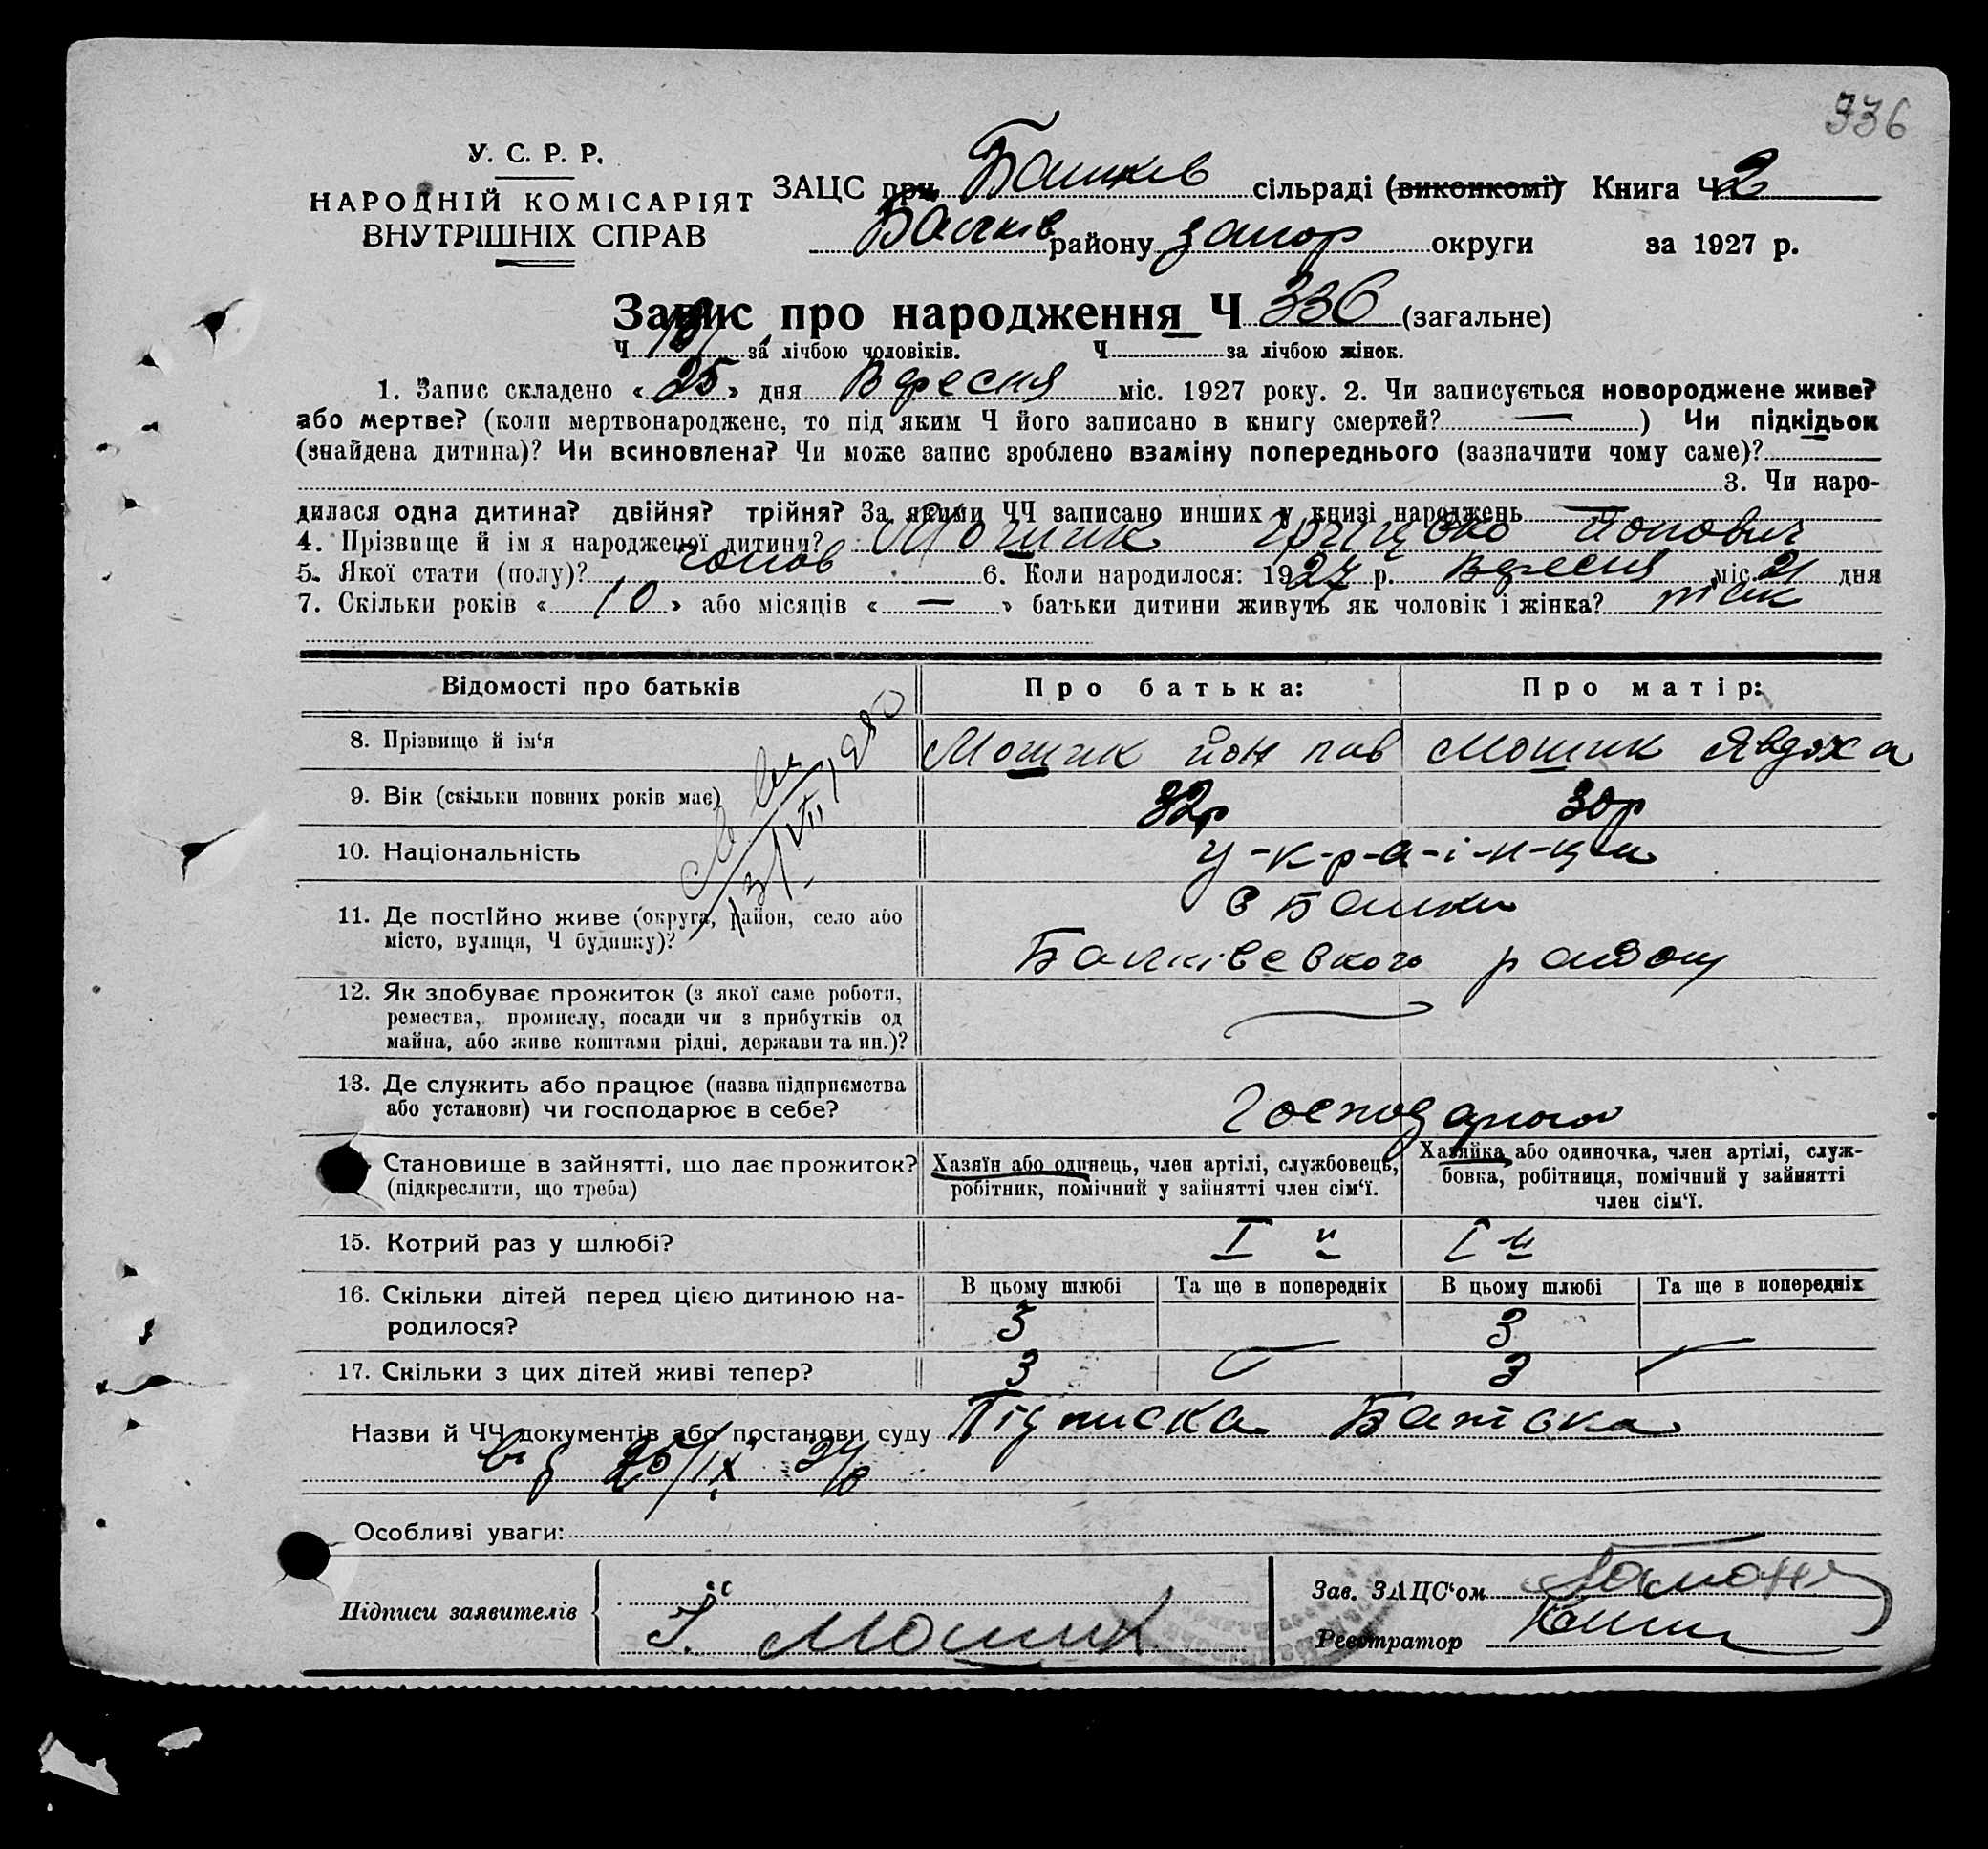 336
У. С. Р. Р.
НАРОДНІЙ КОМІСАРІЯТ
ВНУТРІШНІХ СПРАВ
ЗАЦС при сільраді (виконкомі) Книга Ч 2
району Запор округи за 1927 р.
Запис про народження Ч 336 (загальне)
Ч за лічбою чоловіків. Ч за лічбою жінок.
1. Запис складено « 25 » дня Вересня міс. 1927 року. 2. Чи записується новороджене живе?
або мертве? (коли мертвонароджене, то під яким Ч його записано в книгу смертей? — ) Чи підкідьок
(знайдена дитина)? Чи всиновлена? Чи може запис зроблено взаміну попереднього (зазначити чому саме)?
3. Чи наро-
дилася одна дитина? двійня? трійня? За якими ЧЧ записано инших у книзі народжень —
4. Прізвище й ім я народженої дитини? Мошик Грицько Йонович
5. Якої стати (полу)? чолов 6. Коли народилося: 1927 р. Вересня міс. 21 дня
7. Скільки років « 10 » або місяців « — » батьки дитини живуть як чоловік і жінка?
Відомості про батьків Про батька: Про матір:
8. Прізвище й ім'я Мошик Йон Мошик Явдоха
9. Вік (скільки повних років має) 32р 30р
10. Національність у-к-р-а-ї-н-ци
11. Де постійно живе (округа, район, село або
місто, вулиця, Ч будинку)?
району
12. Як здобуває прожиток (з якої саме роботи,
ремества, промислу, посади чи з прибутків од
майна, або живе коштами рідні, держави та ин.)?
13. Де служить або працює (назва підприємства
або установи) чи господарює в себе?
Становище в зайнятті, що дає прожиток? Хазяїн або одинець, член артілі, службовець, Хазяйка або одиночка, член артілі, служ-
(підкреслити, що треба) робітник, помічний у зайнятті член сім'ї. бовка, робітниця, помічний у зайнятті
член сім'ї.
15. Котрий раз у шлюбі? I й I й
16. Скільки дітей перед цією дитиною на- В цьому шлюбі Та ще в попередніх В цьому шлюбі Та ще в попередніх
родилося? 3 — 3 —
17. Скільки з цих дітей живі тепер? 3 — 3 —
Назви й ЧЧ документів або постанови суду Підписка Батька
від 25/IX 27р
Особливі уваги:
Підписи заявителів Мошик
Зав. ЗАЦС'ом
Реєстратор